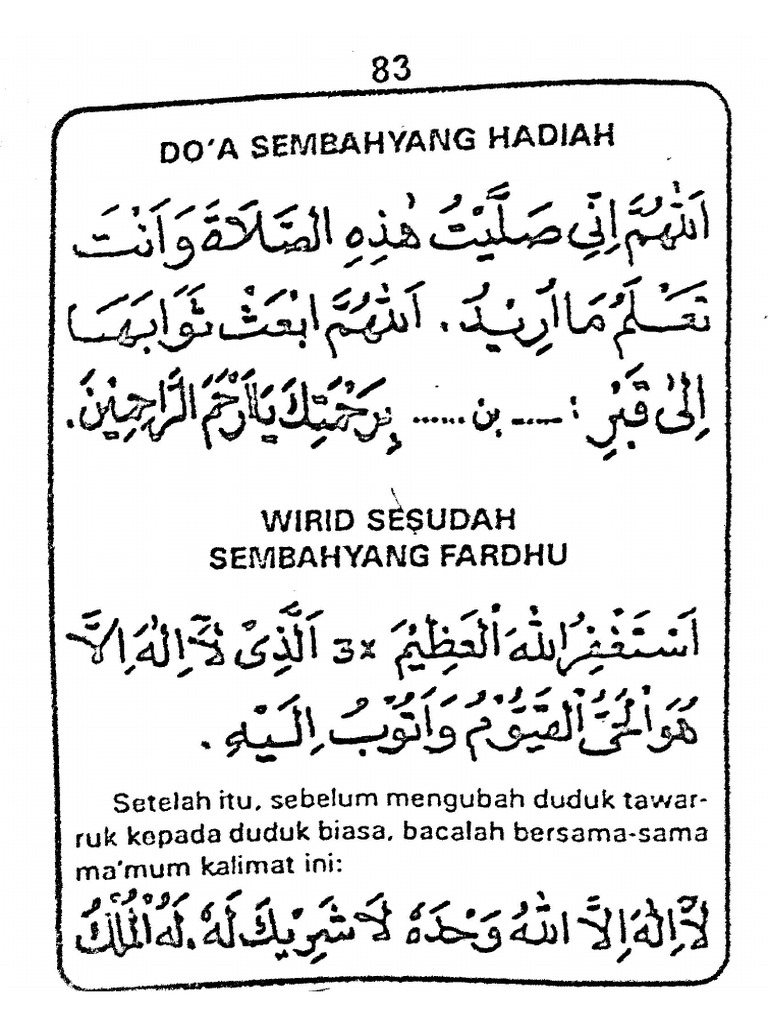 83
DO'A SEMBAHYANG HADIAH
اَللّٰهُمَّ اِنِّي صَلَّيْتُ هٰذِهِ الصَّلَاةَ وَاَنْتَ
تَعْلَمُ مَا اُرِيْدُ . اَللّٰهُمَّ ابْعَثْ ثَوَابَهَا
اِلٰى قَبْرِ : ..... بن ...... بِرَحْمَتِكَ يَا اَرْحَمَ الرَّاحِمِيْنَ.
WIRID SESUDAH
SEMBAHYANG FARDHU
اَسْتَغْفِرُ اللهَ الْعَظِيْمَ 3x اَلَّذِىْ لَآ اِلٰهَ اِلَّا
هُوَ الْحَيُّ الْقَيُّوْمُ وَاَتُوْبُ اِلَيْهِ .
Setelah itu, sebelum mengubah duduk tawar-
ruk kepada duduk biasa, bacalah bersama-sama
ma'mum kalimat ini:
لَآ اِلٰهَ اِلَّا اللهُ وَحْدَهٗ لَا شَرِيْكَ لَهٗ . لَهُ الْمُلْكُ